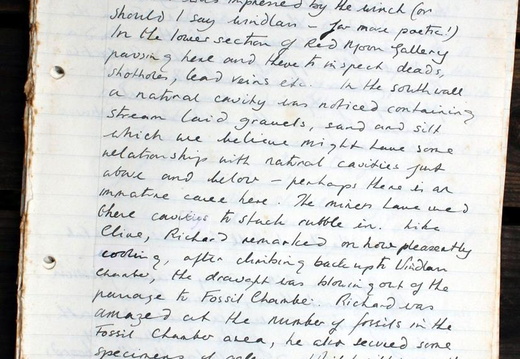 was impressed by the winch (or
should I say windlan - far more poetic!)
In the lower section of Red Moon Gallery
pausing here and there to inspect deads,
shotholes, lead veins etc. In the south wall
a natural cavity was noticed containing
stream laid gravels, sand and silt
which we believe might have some
relationship with natural cavities just
above and below - perhaps there is an
immature cave here. The miners have used
these cavities to stack rubble in. Like
Clive, Richard remarked on how pleasantly
cooling, after climbing back up to Windlan
Chamber, the draught was blowing out of the
passage to Fossil Chamber. Richard was
amazed at the number of fossils in the
Fossil Chamber area, he also secured some
specimens of